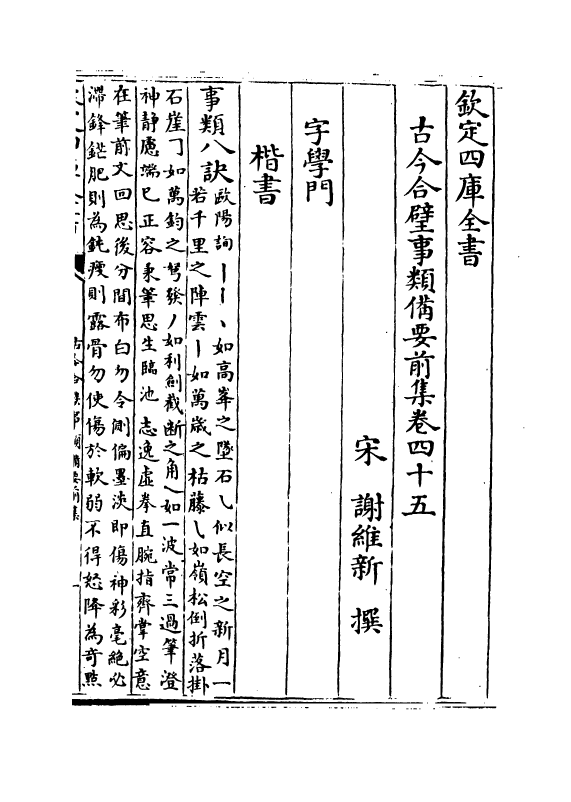 欽定四庫全書
古今合璧事類備要前集卷四十五
宋 謝維新 撰
字學門
楷書
事類八訣歐陽詢丨丨丶如高峯之墜石乚似長空之新月一
若千里之陣雲丨如萬歲之枯藤㇂如嶺松倒折落掛
石崖㇆如萬鈞之弩發丿如利劍截斷之角㇏如一波常三過筆澄
神静慮端巳正容秉筆思生臨池志逸虚拳直腕指齊掌空意
在筆前文回思後分間布白勿令側偏墨淡即傷神彩毫絶必
滯鋒鋩肥則為鈍瘦則露骨勿使傷於軟弱不得怒降為奇㸃